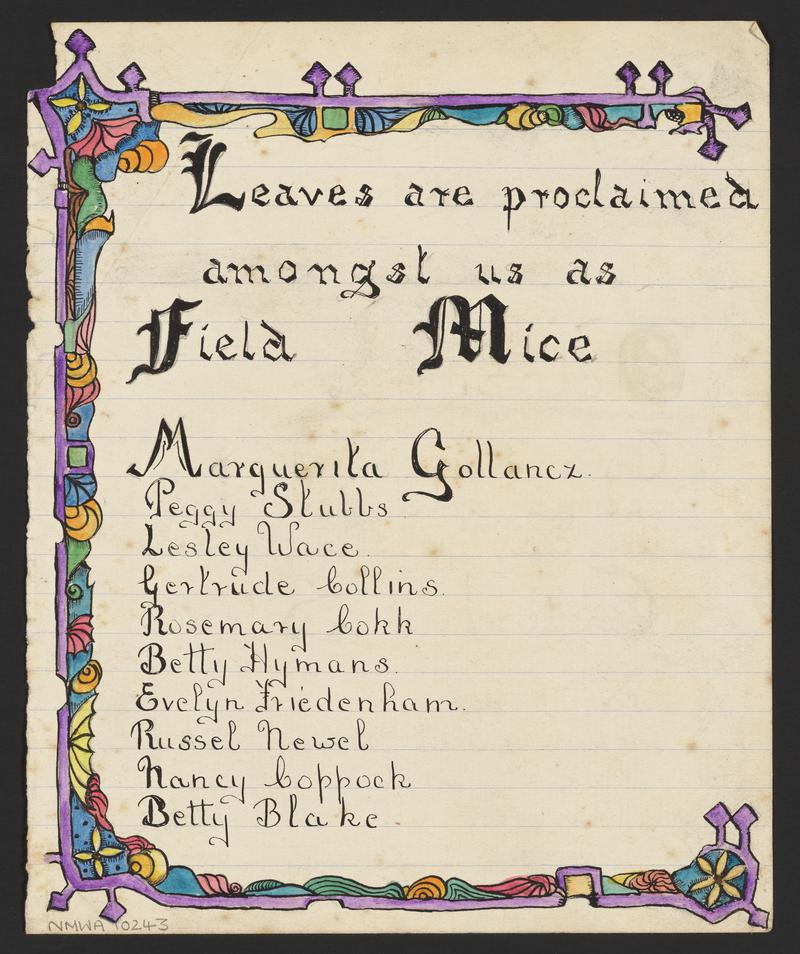 Leaves are proclaimed
amongst us as
Field Mice
Marguerita Gollancz.
Peggy Stubbs.
Lesley Wace.
Gertrude Collins.
Rosemary Cokk
Betty Hymans.
Evelyn Friedenham.
Russel Newel
Nancy Coppock
Betty Blake.
NMWA 10243